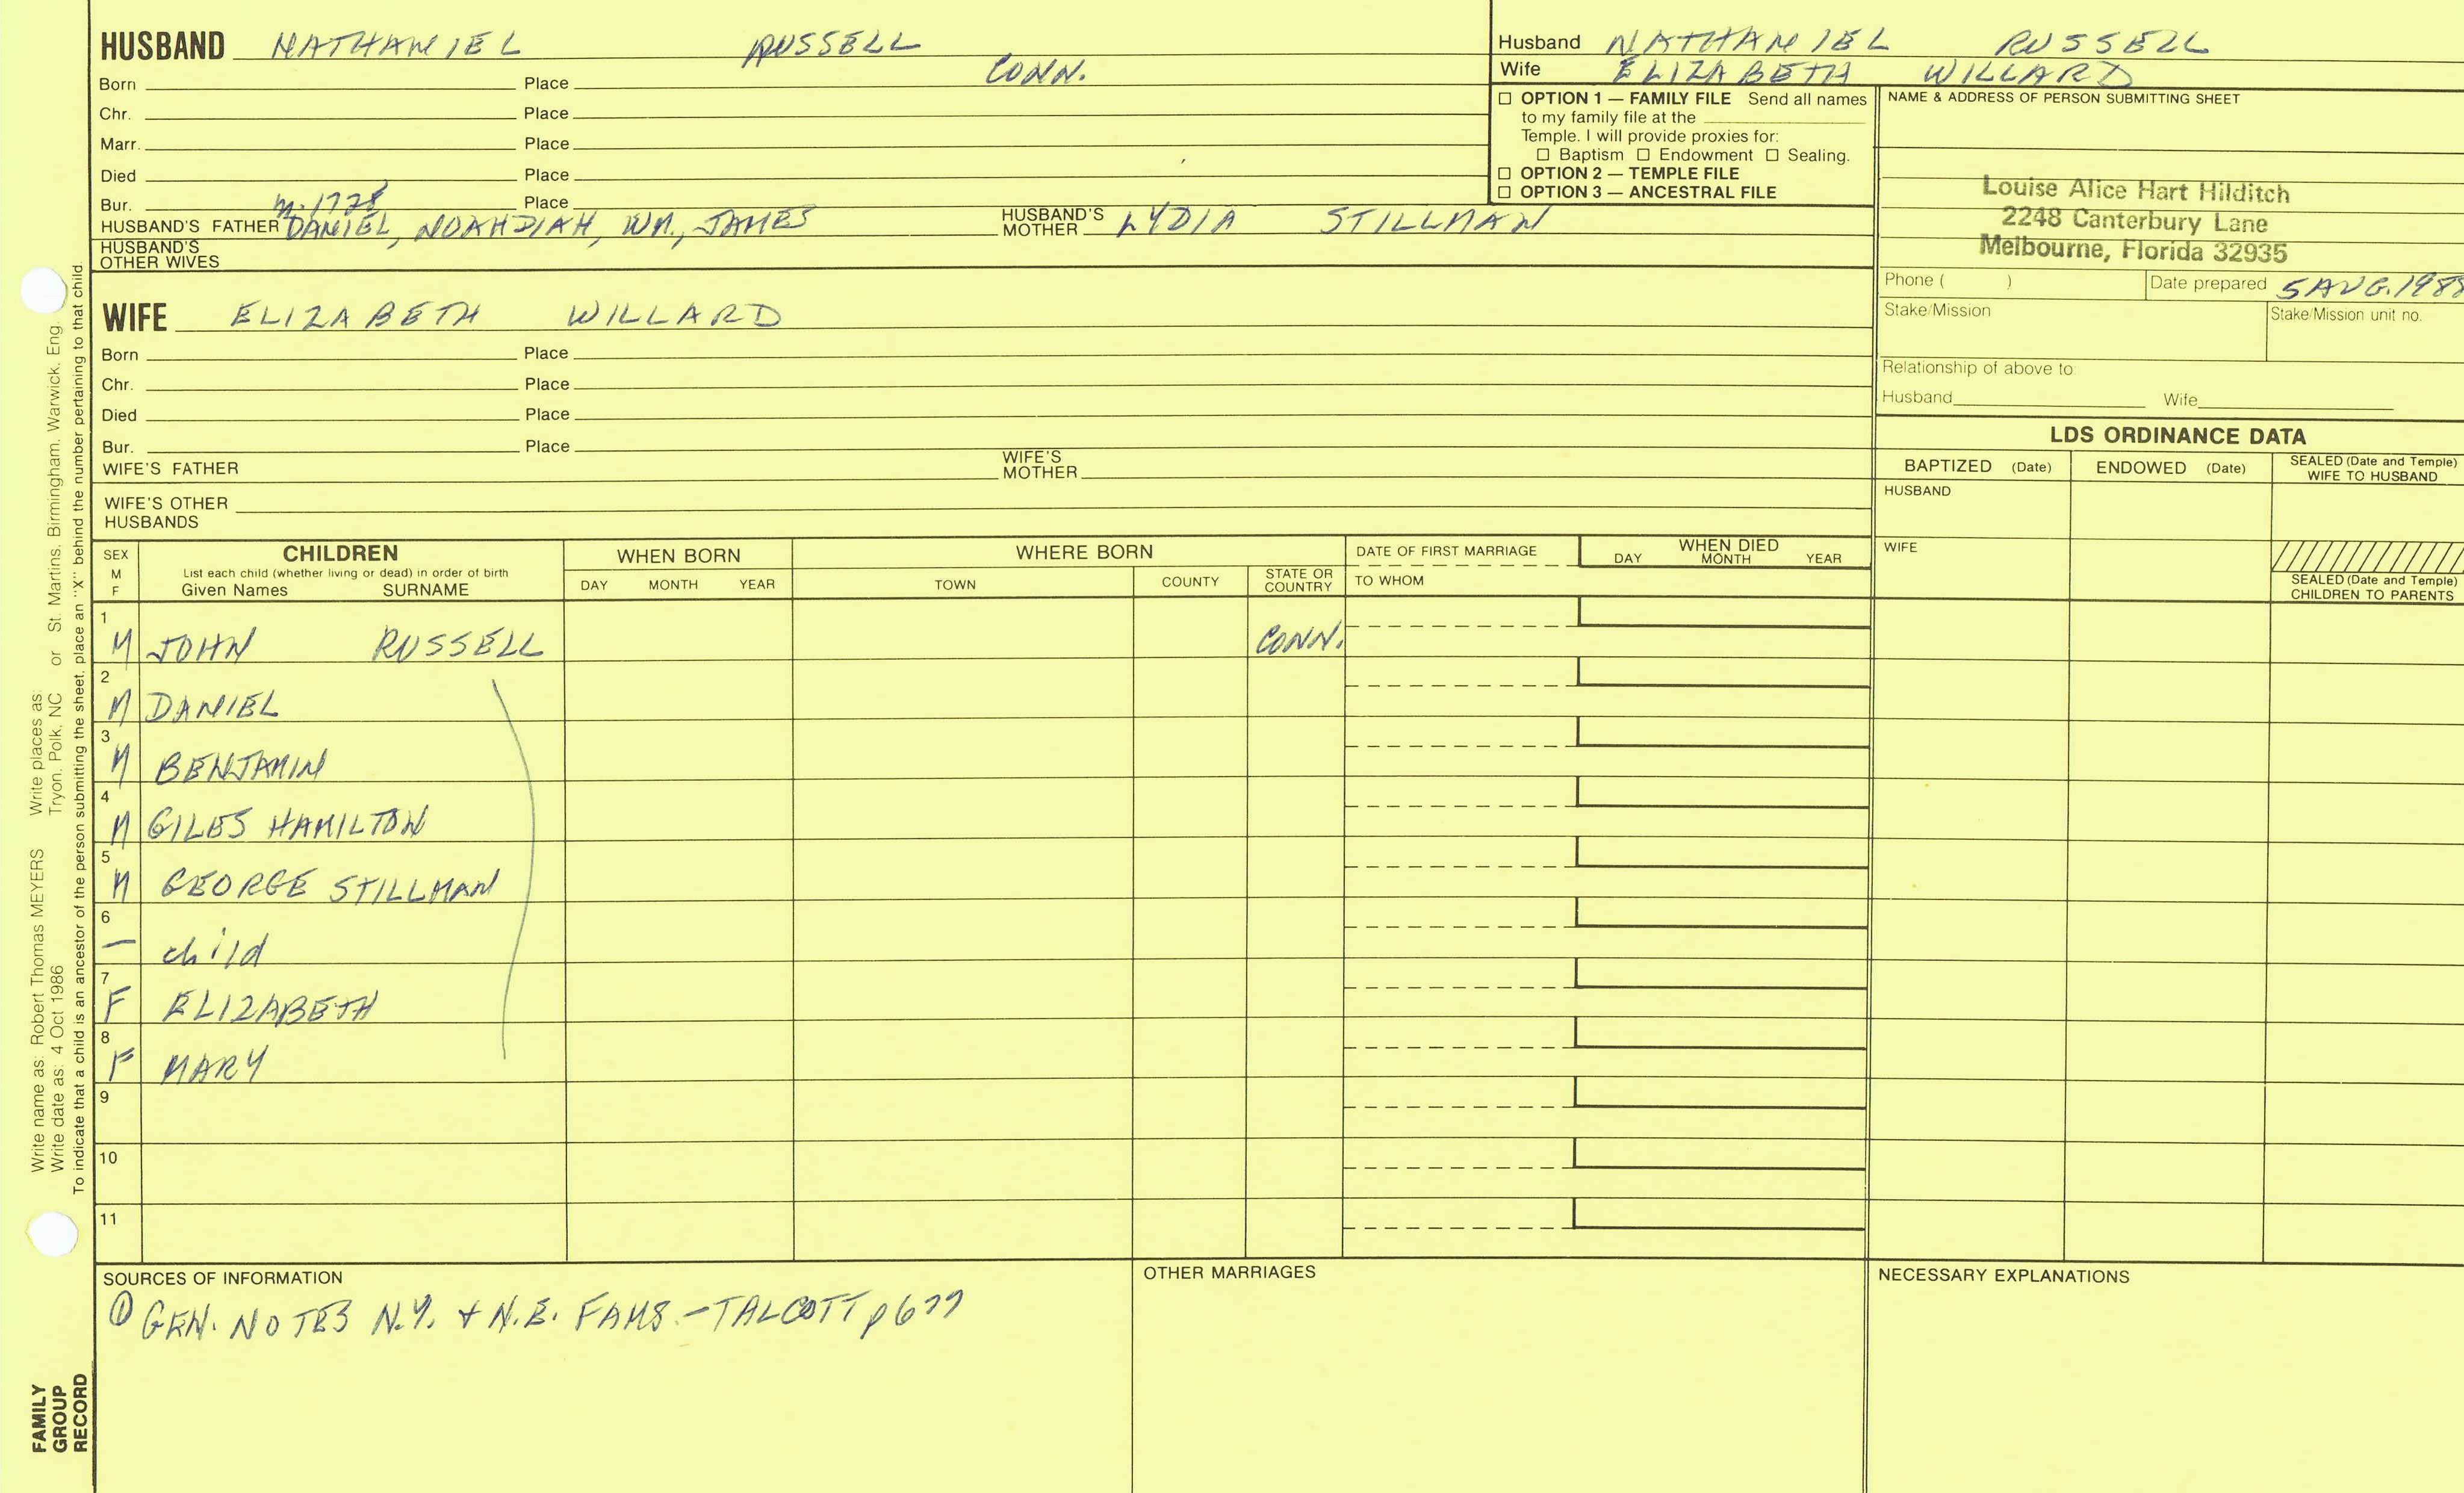 HUSBAND NATHANIEL RUSSELL
Born Place CONN.
Chr. Place
Marr. Place
Died Place
Bur. Place
m. 1728
HUSBAND'S FATHER DANIEL, NOAHDIAH, WM., JAMES HUSBAND'S MOTHER LYDIA STILLMAN
HUSBAND'S OTHER WIVES
WIFE ELIZABETH WILLARD
Born Place
Chr. Place
Died Place
Bur. Place
WIFE'S FATHER WIFE'S MOTHER
WIFE'S OTHER HUSBANDS
Husband NATHANIEL RUSSELL
Wife ELIZABETH WILLARD
☐ OPTION 1 — FAMILY FILE Send all names
to my family file at the
Temple. I will provide proxies for:
☐ Baptism ☐ Endowment ☐ Sealing.
☐ OPTION 2 — TEMPLE FILE
☐ OPTION 3 — ANCESTRAL FILE
NAME & ADDRESS OF PERSON SUBMITTING SHEET
Louise Alice Hart Hilditch
2248 Canterbury Lane
Melbourne, Florida 32935
Phone ( ) Date prepared 5 AUG. 1988
Stake/Mission Stake/Mission unit no.
Relationship of above to:
Husband Wife
LDS ORDINANCE DATA
BAPTIZED (Date) ENDOWED (Date) SEALED (Date and Temple) WIFE TO HUSBAND
HUSBAND
WIFE
SEALED (Date and Temple)
CHILDREN TO PARENTS
SEX M F CHILDREN WHEN BORN WHERE BORN DATE OF FIRST MARRIAGE WHEN DIED
List each child (whether living or dead) in order of birth
Given Names SURNAME DAY MONTH YEAR TOWN COUNTY STATE OR COUNTRY TO WHOM DAY MONTH YEAR
1 M JOHN RUSSELL CONN.
2 M DANIEL
3 M BENJAMIN
4 M GILES HAMILTON
5 M GEORGE STILLMAN
6 — child
7 F ELIZABETH
8 F MARY
9
10
11
SOURCES OF INFORMATION
① GEN. NOTES N.Y. + N.E. FAMS. - TALCOTT p 677
OTHER MARRIAGES
NECESSARY EXPLANATIONS
Write name as: Robert Thomas MEYERS Write places as:
Write date as: 4 Oct 1986 Tryon, Polk, NC or St. Martins, Birmingham, Warwick, Eng.
To indicate that a child is an ancestor of the person submitting the sheet, place an "X" behind the number pertaining to that child.
FAMILY
GROUP
RECORD